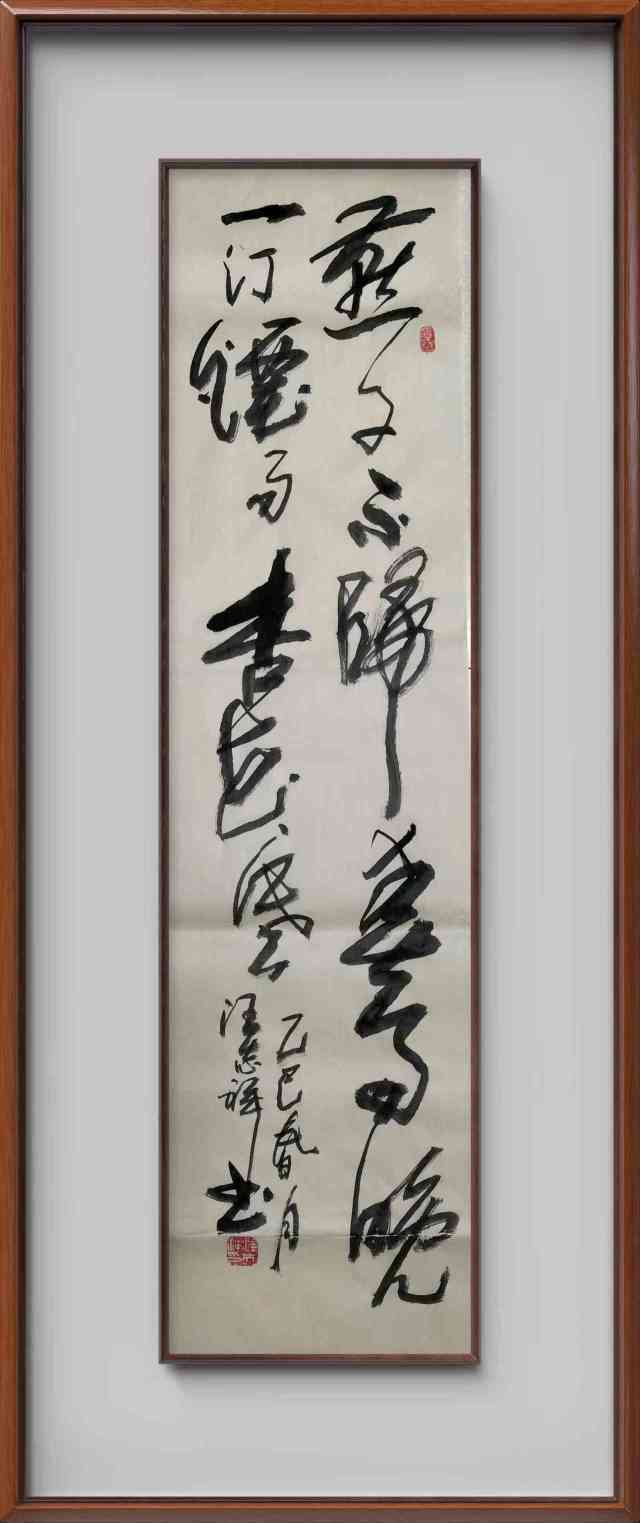 燕子不歸春事晚
一汀煙雨杏花寒
乙巳春月
汪志祥书